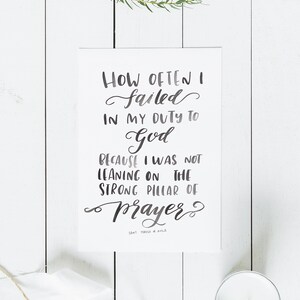 HOW OFTEN I
failed
IN MY DUTY TO
God
BECAUSE I WAS NOT
LEANING ON THE
STRONG PILLAR OF
prayer